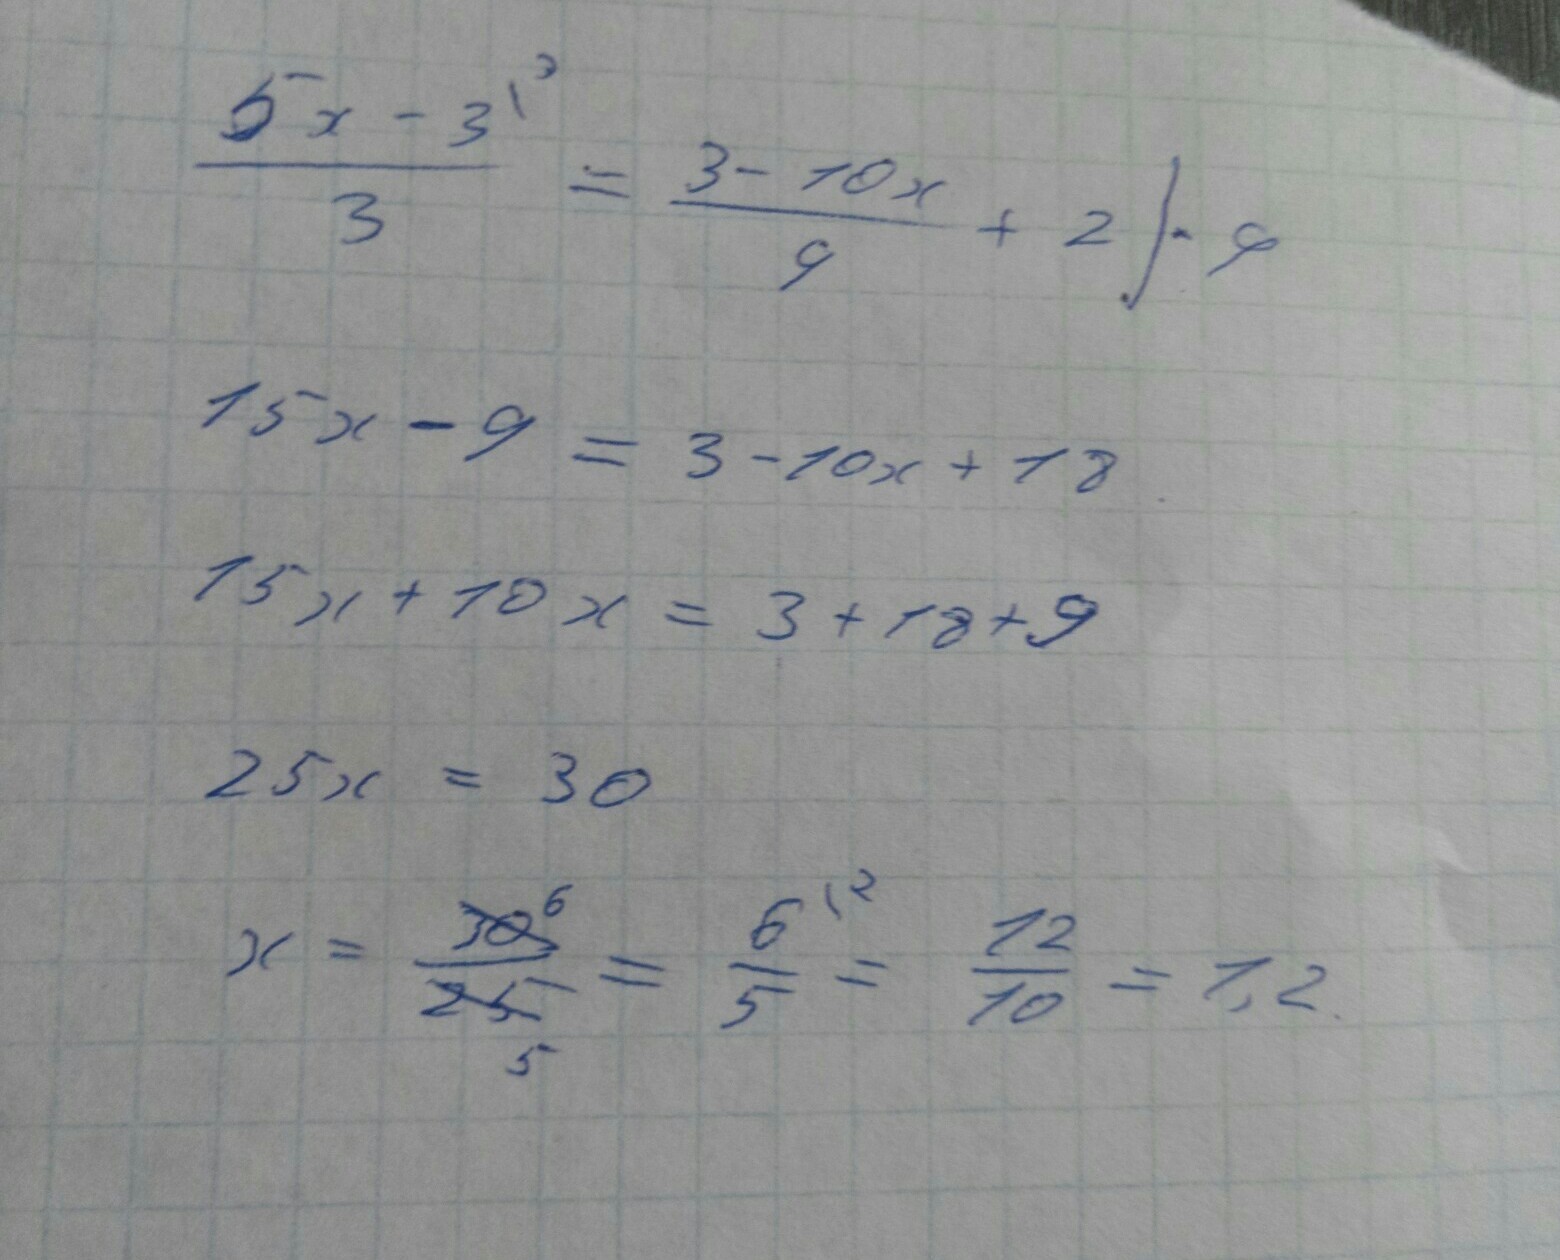 (5x - 3)/3 ⁽³ = (3 - 10x)/9 + 2 | · 9
15x - 9 = 3 - 10x + 18
15x + 10x = 3 + 18 + 9
25x = 30
x = 30/25 ⁶/₅ = 6/5 ⁽² = 12/10 = 1,2.